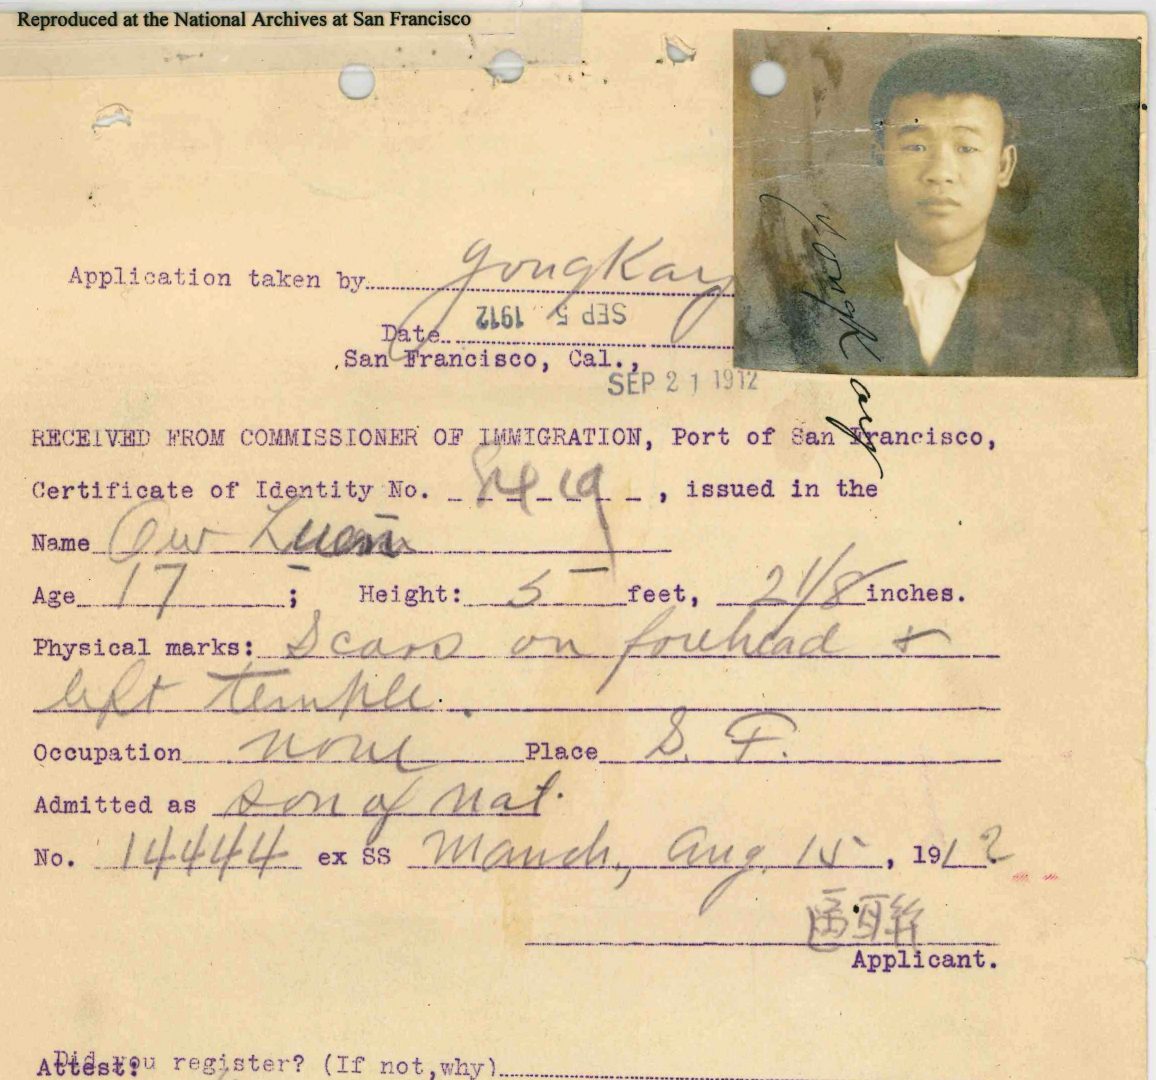 Reproduced at the National Archives at San Francisco
Application taken by Yong Kay
Date SEP 5 1912
San Francisco, Cal.,
SEP 21 1912
Yong Kay
RECEIVED FROM COMMISSIONER OF IMMIGRATION, Port of San Francisco,
Certificate of Identity No. , issued in the
Name Ow Luen
Age 17 ; Height: 5 feet, 2 1/8 inches.
Physical marks: Scars on forehead +
left temple.
Occupation none Place S. F.
Admitted as son of Nat.
No. 14444 ex SS Manch, Aug. 15, 1912
區聯
Applicant.
Did you register? (If not, why)
Attest: